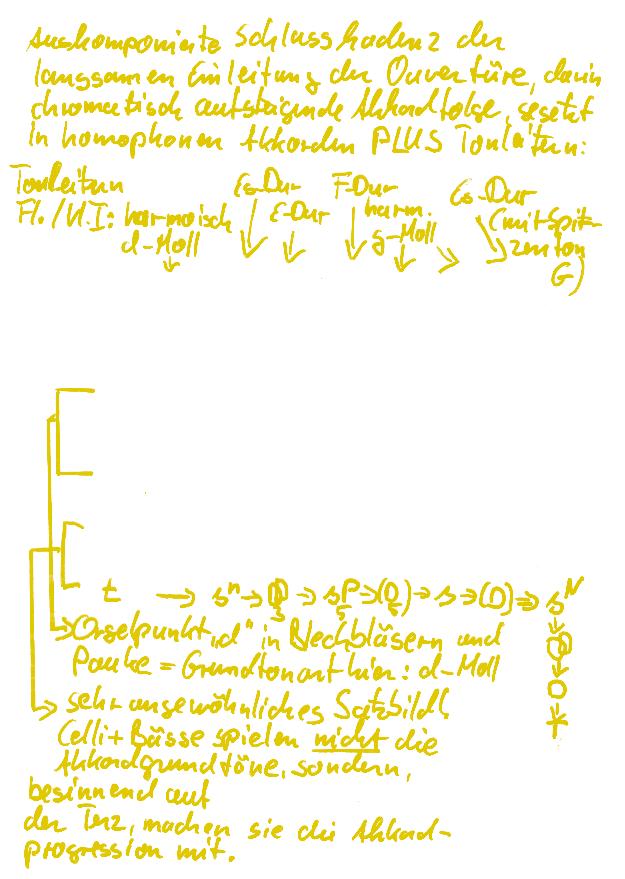 Auskomponierte Schlusskadenz der
langsamen Einleitung der Ouvertüre, darin
chromatisch aufsteigende Akkordfolge, gesetzt
in homophonen Akkorden PLUS Tonleitern:
Tonleitern Es-Dur F-Dur Es-Dur
Fl./Vl.I: harmoisch E-Dur harm. (mit Spit-
d-Moll g-Moll zenton
G)
t → sⁿ → → sP → (D) → s → (D) → sᴺ
Orgelpunkt „d" in Blechbläsern und
Pauke = Grundtonart hier: d-Moll
sehr ungewöhnliches Satzbild!
Celli + Bässe spielen nicht die
Akkordgrundtöne, sondern,
beginnend auf
der Terz, machen sie die Akkord-
progression mit.